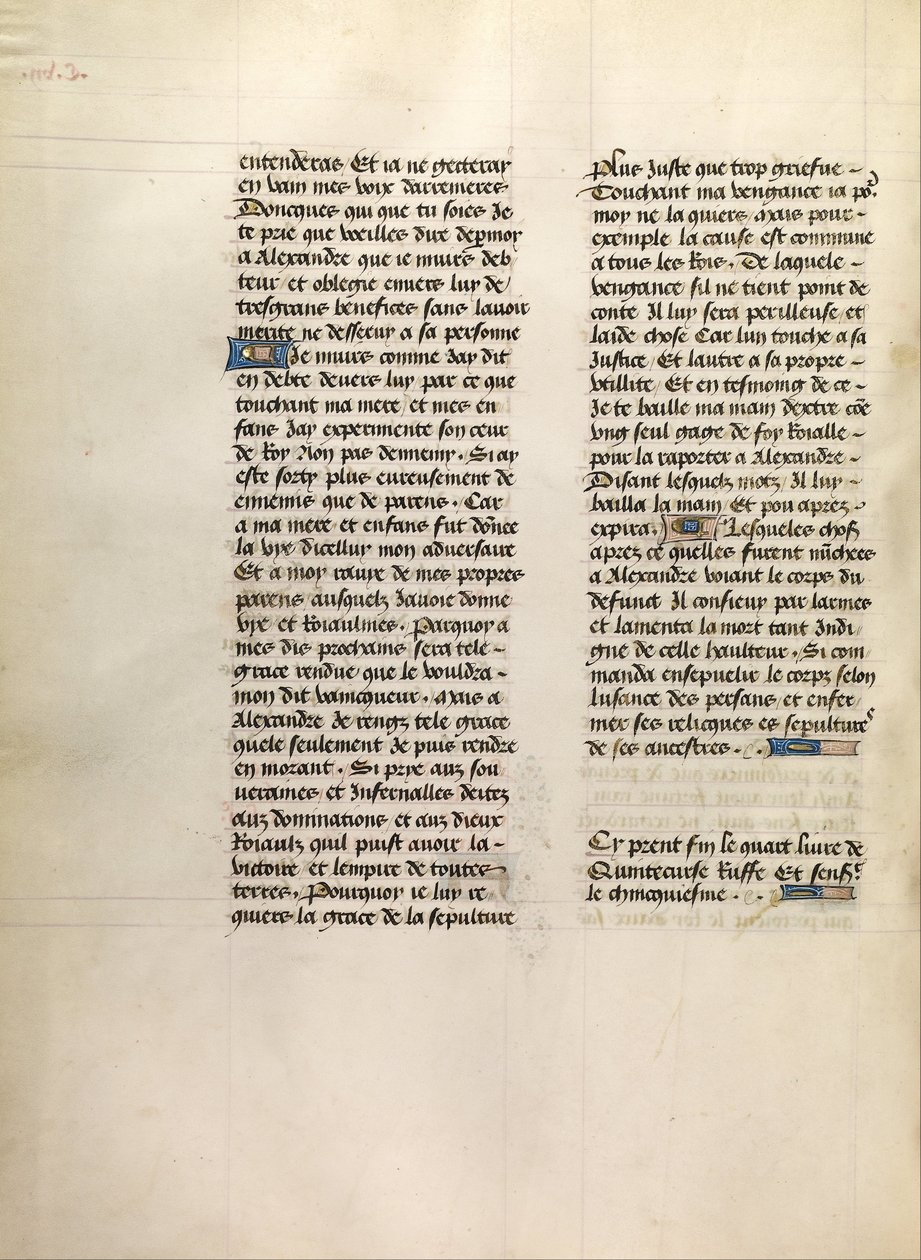 entenderas / Et ia ne gecteray
en vain mes voix darrenieres
Doncques qui que tu soies Je
te prie que vueilles dire de p moy
a Alexandre que ie muirs deb /
teur / et oblegie enuers luy de /
tresgrans benefices sans lauoir
merite ne desseruy a sa personne
Je muirs comme Jay dit
en debte deuers luy par ce que
touchant ma mere / et mes en
fans Jay experimente son ceur
de Roy Non pas dennemy . Si ay
este sorty plus eureusement de
ennemis que de parens . Car
a ma mere et enfans fut dõnee
la vye dicelluy mon aduersaire
Et a moy rauye de mes propres
parens / ausquelz Jauoie donne
vye et Roiaulmes . Parquoy a
mes dis prochains sera tele -
grace rendue que le vouldra -
mon dit vaincqueur . Mais a
Alexandre Je rengz tele grace
quele seulement Je puis rendre
en morant . Si prye auz sou /
ueraines / et Infernalles deitez
auz dominations / et auz dieux
Roiaulz quil puist auoir la -
victoire / et lempire de toutes
terres . Pourquoy ie luy re /
quiers la grace de la sepulture
Plus Juste que trop griefue -
Touchant ma vengance ia po᷑ .
moy ne la quiers / Mais pour -
exemple / la cause est commune
a tous les Rois . De laquele -
vengance sil ne tient point de
conte Il luy sera perilleuse / et
laide chose Car lun touche a sa
Justice / Et lautre a sa propre -
vtillite / Et en tesmoing de ce -
Je te baille ma main dextre cõe
vng seul gage de foy Roialle -
pour la raporter a Alexandre -
Disant lesquelz motz / Il luy -
bailla la main / Et pou aprez -
expira . Lesqueles choses
aprez ce quelles furent nũchees
a Alexandre voiant le corps du
defunct Il consieuy par larmes
et lamenta la mort tant Indi /
gne de celle haulteur . Si com
manda ensepuelir le corpz selon
lusance des persans / et enfer /
mer ses relicques es sepultures
de ses ancestres .
Cy prent fin le quart liure de
Quintecurse Ruffe Et sensr̃.
le chincquiesme .